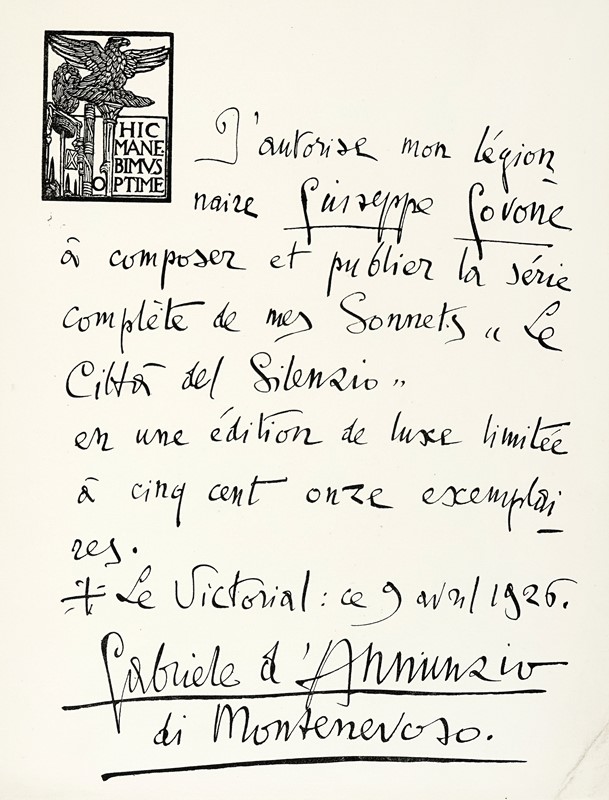 HIC
MANE
BIMVS
OPTIME
J'autorise mon légion
naire Giuseppe Govone
à composer et publier la série
complète de mes Sonnets „ Le
Città del Silenzio „
en une édition de luxe limitée
à cinq cent onze exemplai
res.
Le Victorial : ce 9 avril 1926.
Gabriele d'Annunzio
di Montenevoso.